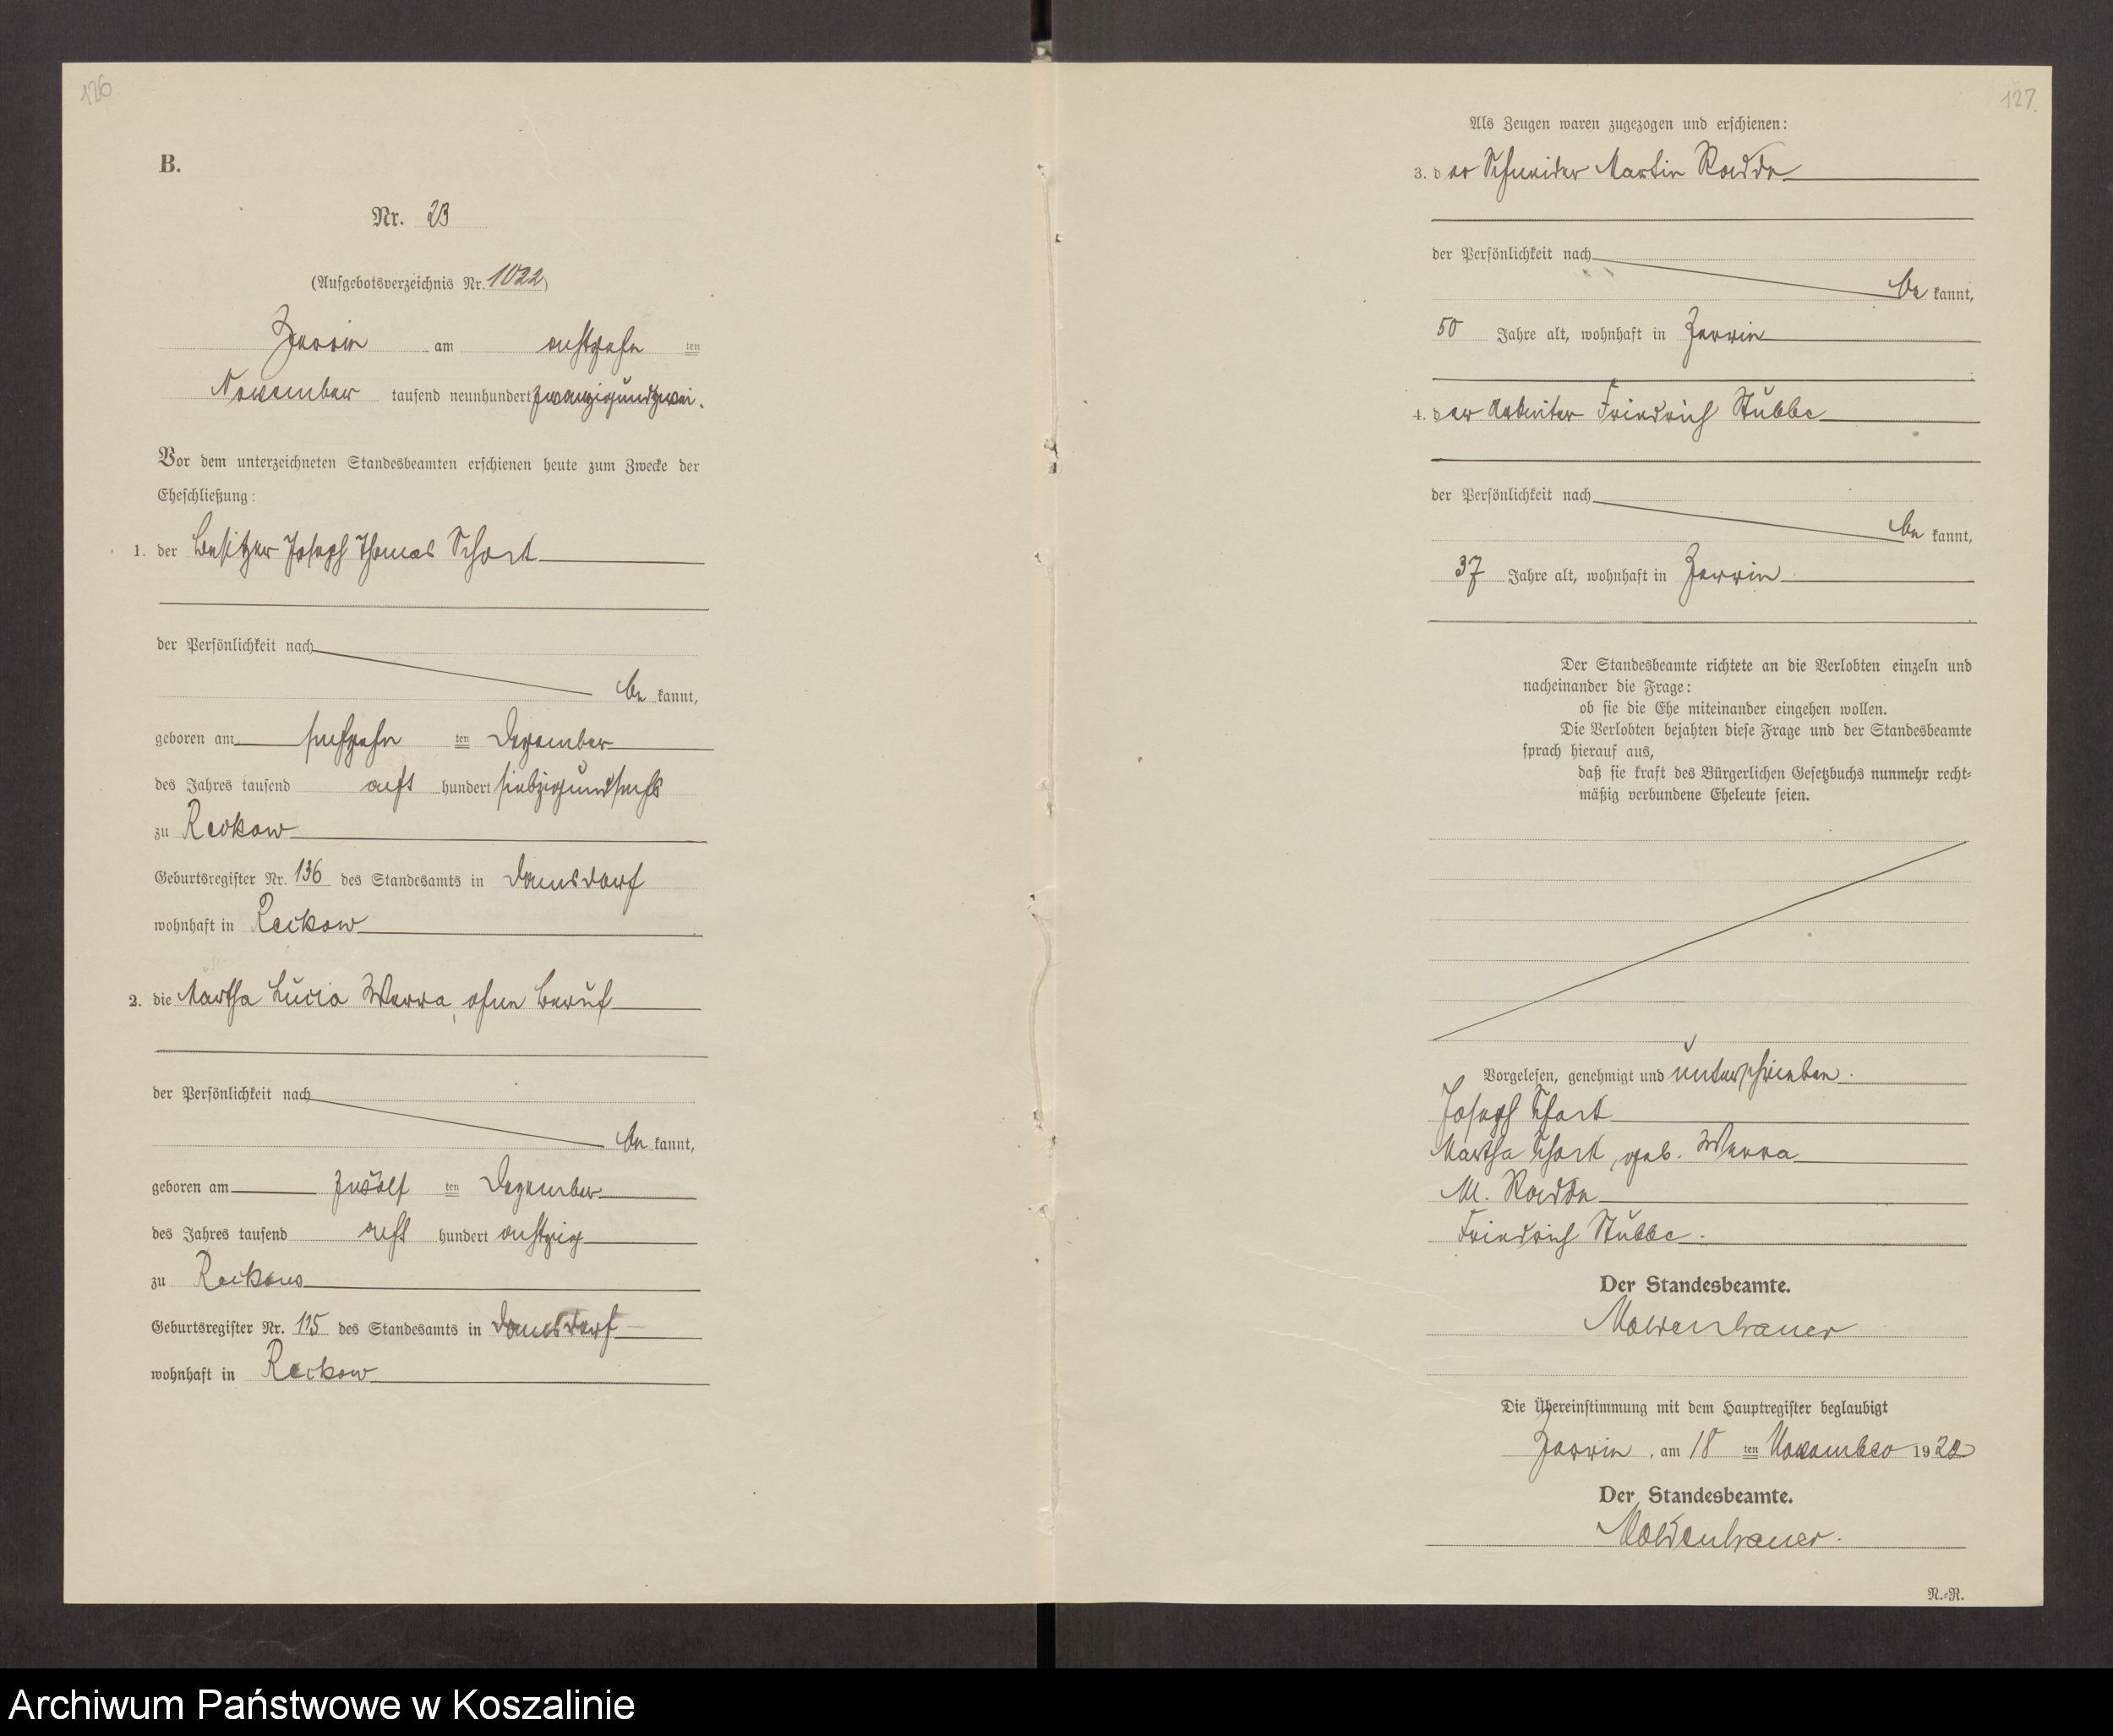 126
B.
Nr. 23
(Aufgebotsverzeichnis Nr. 1022)
Zerrin am achtzehn ten
November tausend neunhundert zwanzigundzwei.
Vor dem unterzeichneten Standesbeamten erschienen heute zum Zwecke der
Eheschließung:
1. der Besitzer Joseph Thomas Schork
der Persönlichkeit nach
be kannt,
geboren am sechzehn ten Dezember
des Jahres tausend acht hundert siebzigundsechs
zu Reckow
Geburtsregister Nr. 136 des Standesamts in Damsdorf
wohnhaft in Reckow
2. die Martha Lucia Werra, ohne Beruf
der Persönlichkeit nach
be kannt,
geboren am zwölf ten Dezember
des Jahres tausend acht hundert achtzig
zu Reckow
Geburtsregister Nr. 115 des Standesamts in Damsdorf
wohnhaft in Reckow
127
Als Zeugen waren zugezogen und erschienen:
3. der Schneider Martin Radde
der Persönlichkeit nach
be kannt,
50 Jahre alt, wohnhaft in Zerrin
4. der Arbeiter Friedrich Stubbe
der Persönlichkeit nach
be kannt,
37 Jahre alt, wohnhaft in Zerrin
Der Standesbeamte richtete an die Verlobten einzeln und
nacheinander die Frage:
ob sie die Ehe miteinander eingehen wollen.
Die Verlobten bejahten diese Frage und der Standesbeamte
sprach hierauf aus,
daß sie kraft des Bürgerlichen Gesetzbuchs nunmehr recht-
mäßig verbundene Eheleute seien.
Vorgelesen, genehmigt und unterschrieben.
Joseph Schork
Martha Schork, geb. Werra
M. Radde
Friedrich Stubbe.
Der Standesbeamte.
Moldenhauer
Die Übereinstimmung mit dem Hauptregister beglaubigt
Zerrin, am 18 ten November 1922
Der Standesbeamte.
Moldenhauer.
N.-R.
Archiwum Państwowe w Koszalinie